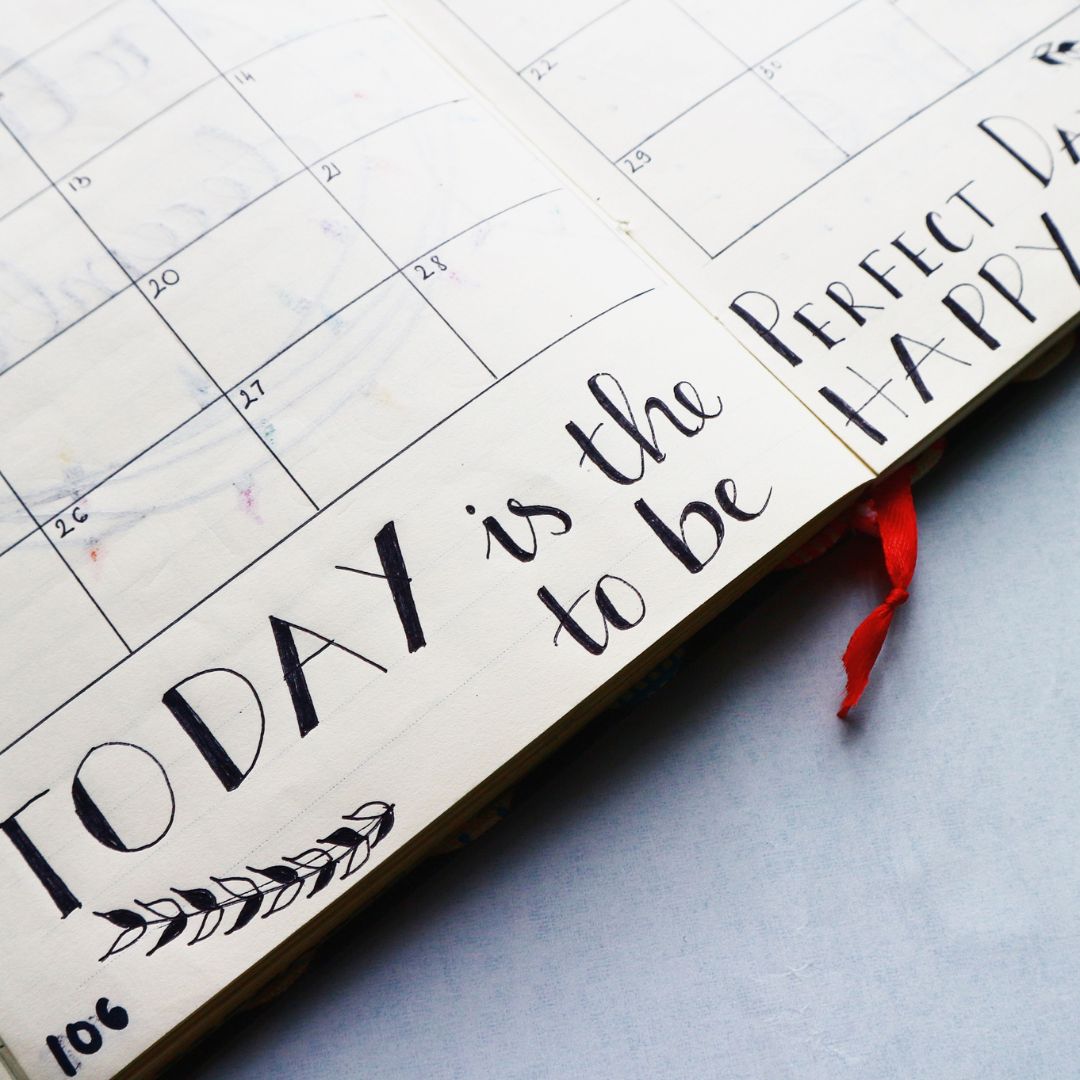 13 14
20 21
26 27 28
22
29 30
TODAY is the PERFECT DA
to be HAPPY
106